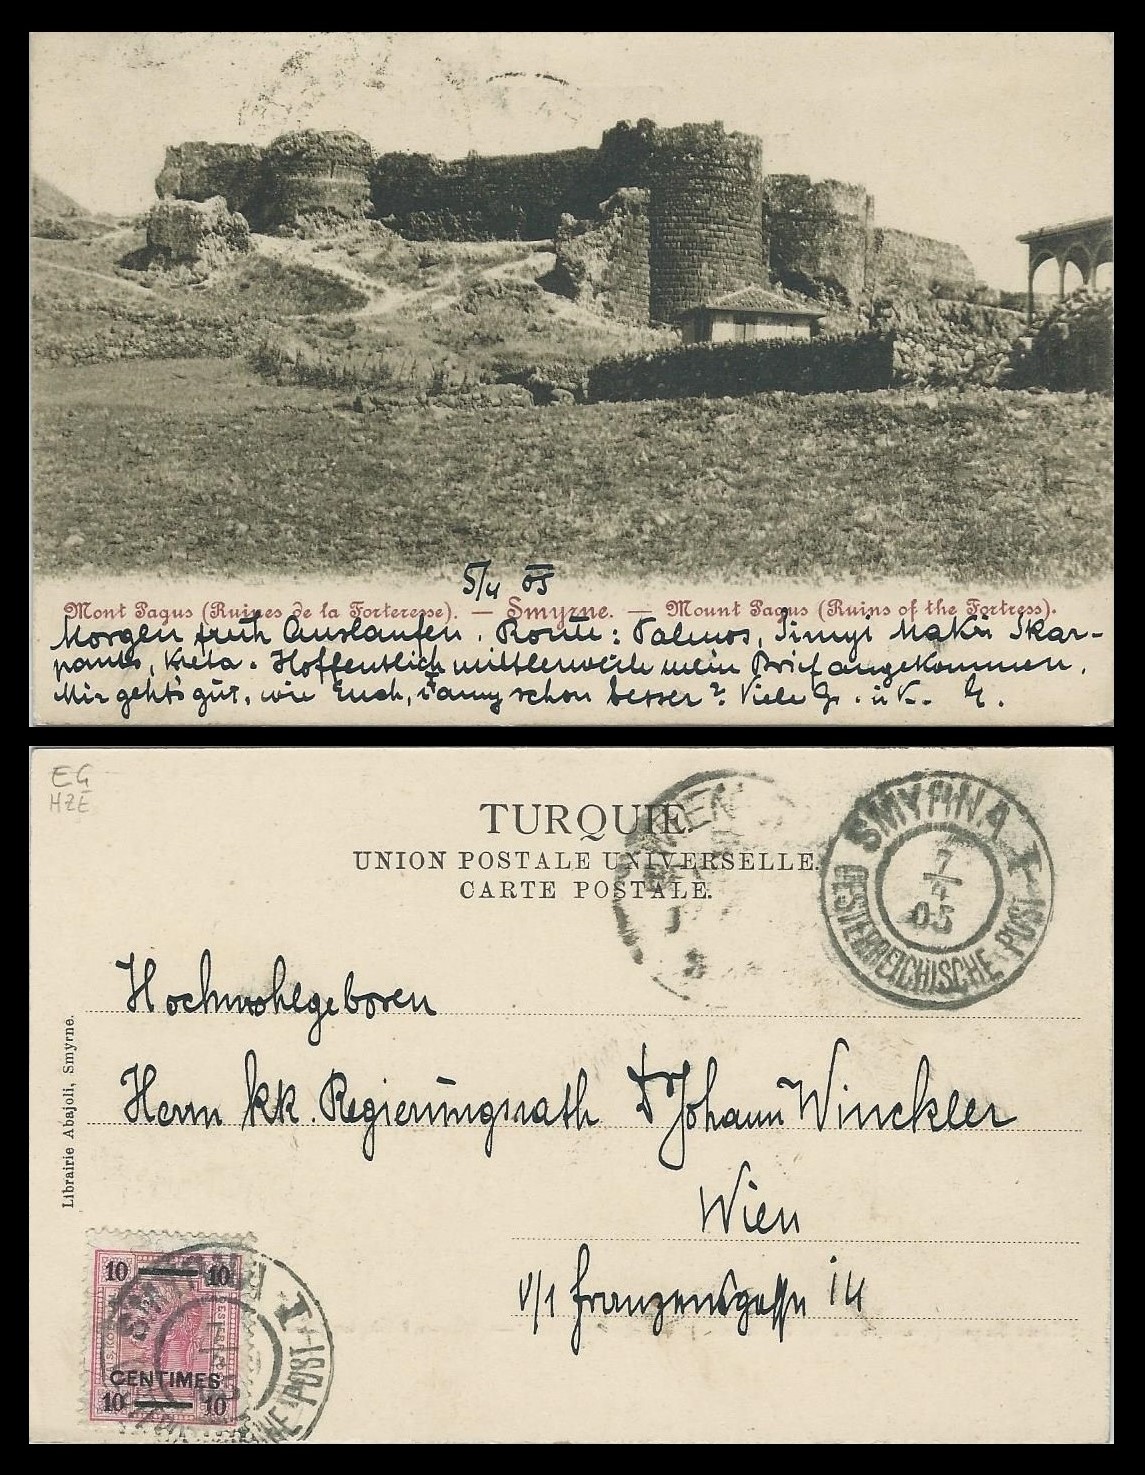 5/4 05
Mont Pagus (Ruines de la Forteresse). — Smyrne. — Mount Pagus (Ruins of the Fortress).
Morgen früh Auslaufen. Route: Patmos, Simyi Makri Skar-
panto, Kreta. Hoffentlich mittlerweile mein Brief angekommen.
Mir geht's gut, wie Euch, Fanny schon besser? Viele Gr. u. K. E.
EG
HZE
TURQUIE.
UNION POSTALE UNIVERSELLE.
CARTE POSTALE.
WIEN
SMYRNA I
7
4
05
OESTERREICHISCHE POST
Hochwohlgeboren
Herrn kk. Regierungsrath Dr Johann Winckler
Wien
V/1 Franzensgasse 14
Librairie Abajoli, Smyrne.
10 10
CENTIMES
10 10
SMYRNA I
POST